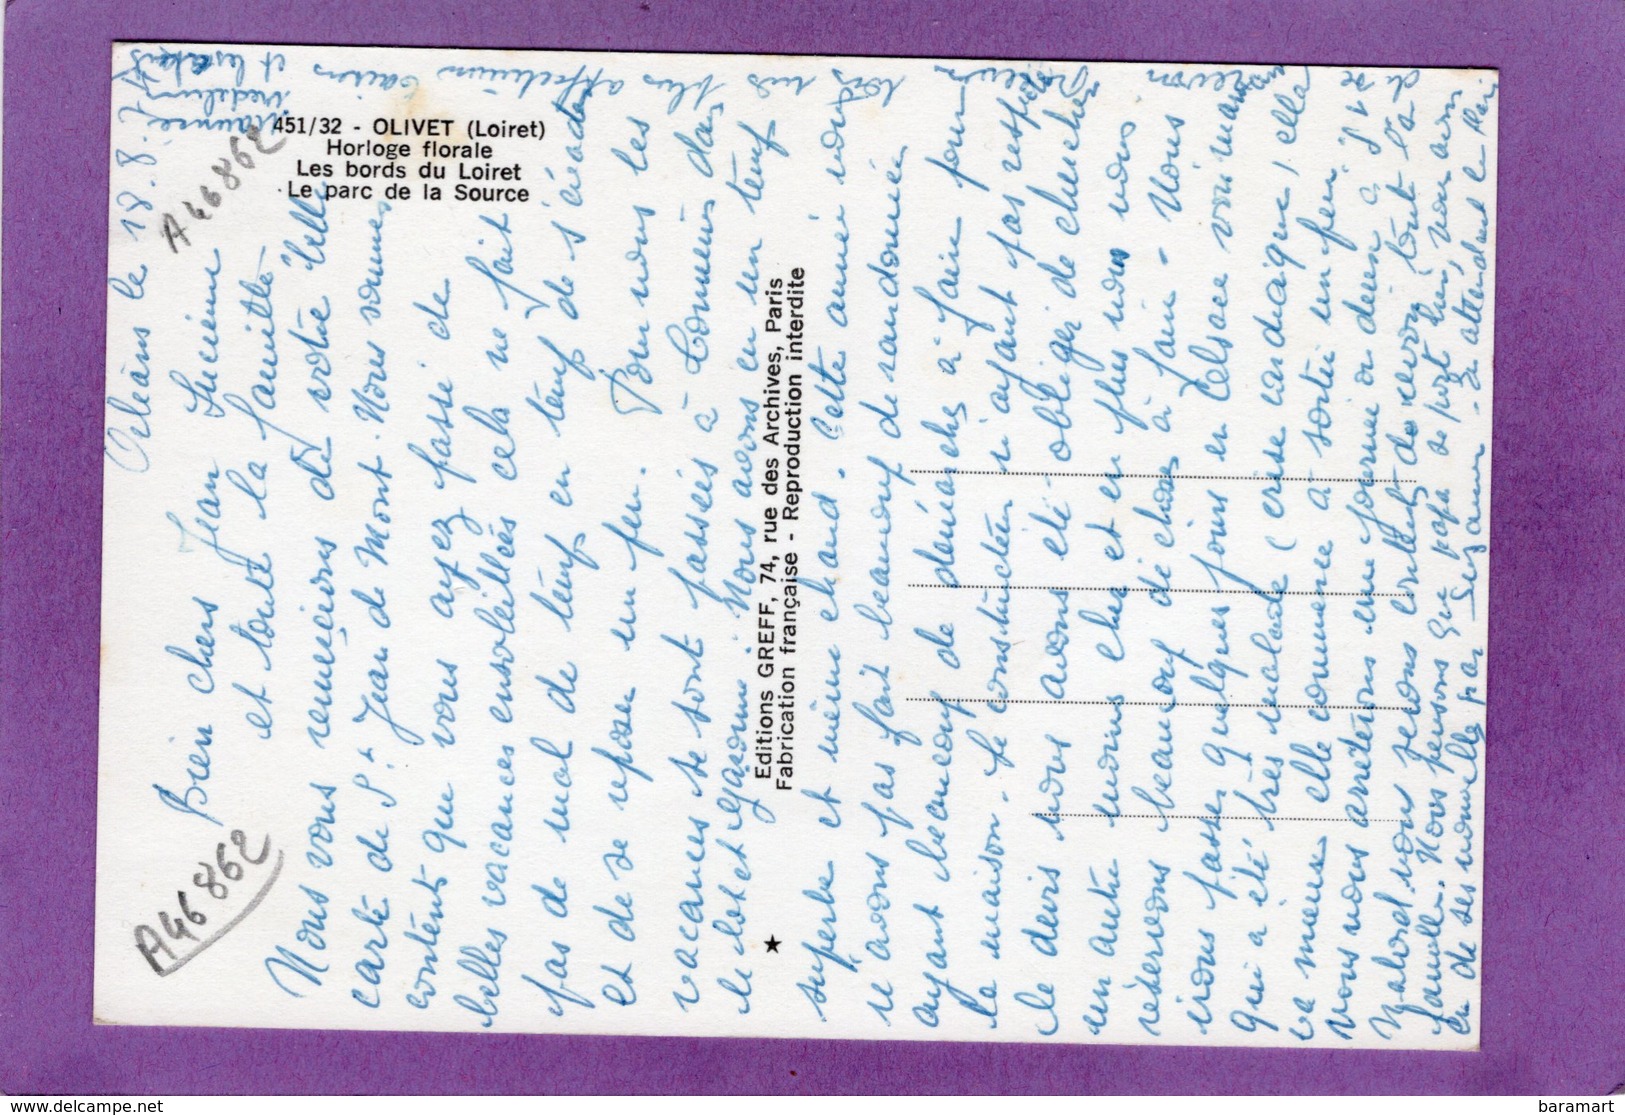 451/32 - OLIVET (Loiret)
Horloge florale
Les bords du Loiret
Le parc de la Source
A46862
A46862
Editions GREFF, 74, rue des Archives, Paris
Fabrication française - Reproduction interdite
Orléans le 18.8.
Bien chers Jean Lucienne
et toute la famille
Nous vous remercions de votre belle
carte de St Jean de Mont. Nous sommes
contents que vous ayez passé de
belles vacances ensoleillées cela ne fait
pas de mal de temps en temps de s'évader
et de se reposer un peu. Pour nous les
vacances se sont passées à Cormeins dans
le Lot et Garonne. Nous avons eu un temps
superbe et même chaud. Cette année nous
n'avons pas fait beaucoup de randonnée
ayant beaucoup de démarches à faire pour
la maison. Le constructeur n'ayant pas respecté
le devis nous avons été obliger de chercher
un autre moins cher et en plus nous nous
réservons beaucoup de choses à faire - Nous
irons passer quelques jours en Alsace voir maman
qui a été très malade (crise cardiaque) elle
va mieux elle commence à sortir un peu
nous nous arrêterons une journée ou deux à
nous serons contents de revoir toute la
famille. Nous pensons que papa se port bien, nous avons
eu de ses nouvelle par Suzanne. En attendant le
plus affectueux baisers
et les enfants
delcampe.net
baramart